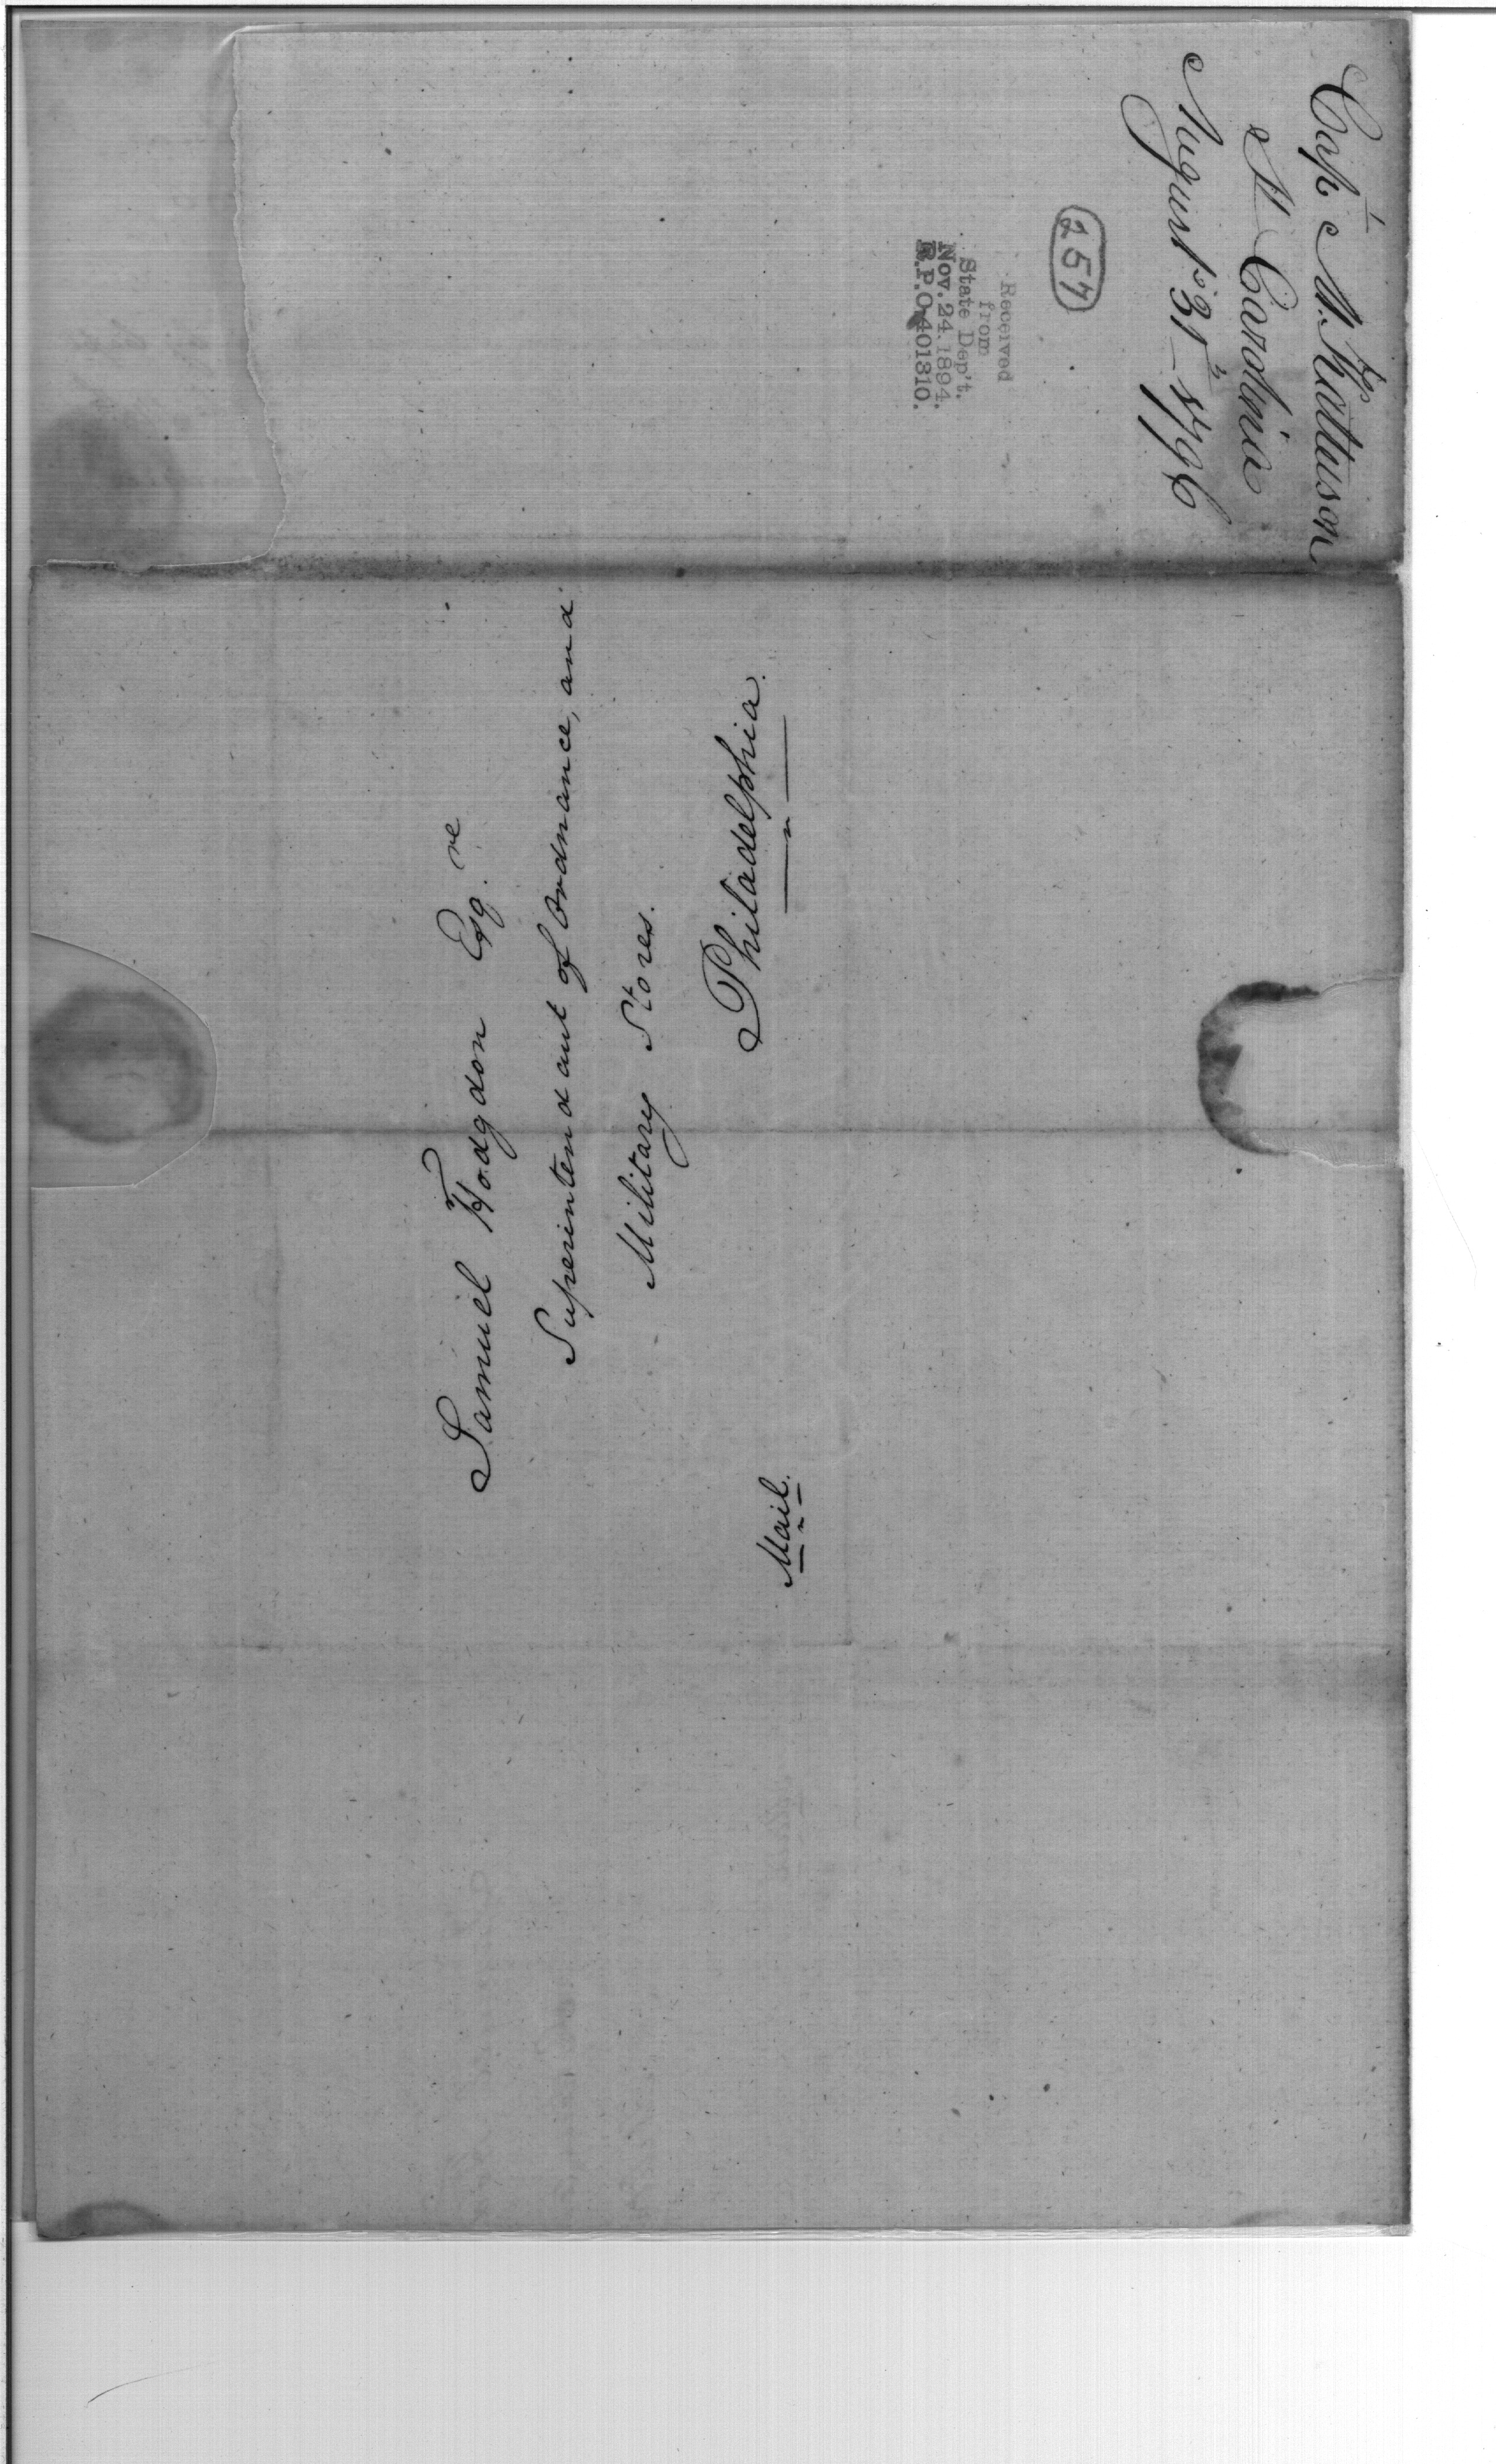 Capt
N Carolina
August 31st 1796
254
Received
from
State Dep't.
Nov. 24. 1894.
R.P.O. 401310.
Samuel Hodgdon Esq.re
Superintendant of Ordnance, and
Military Stores.
Philadelphia.
Mail.